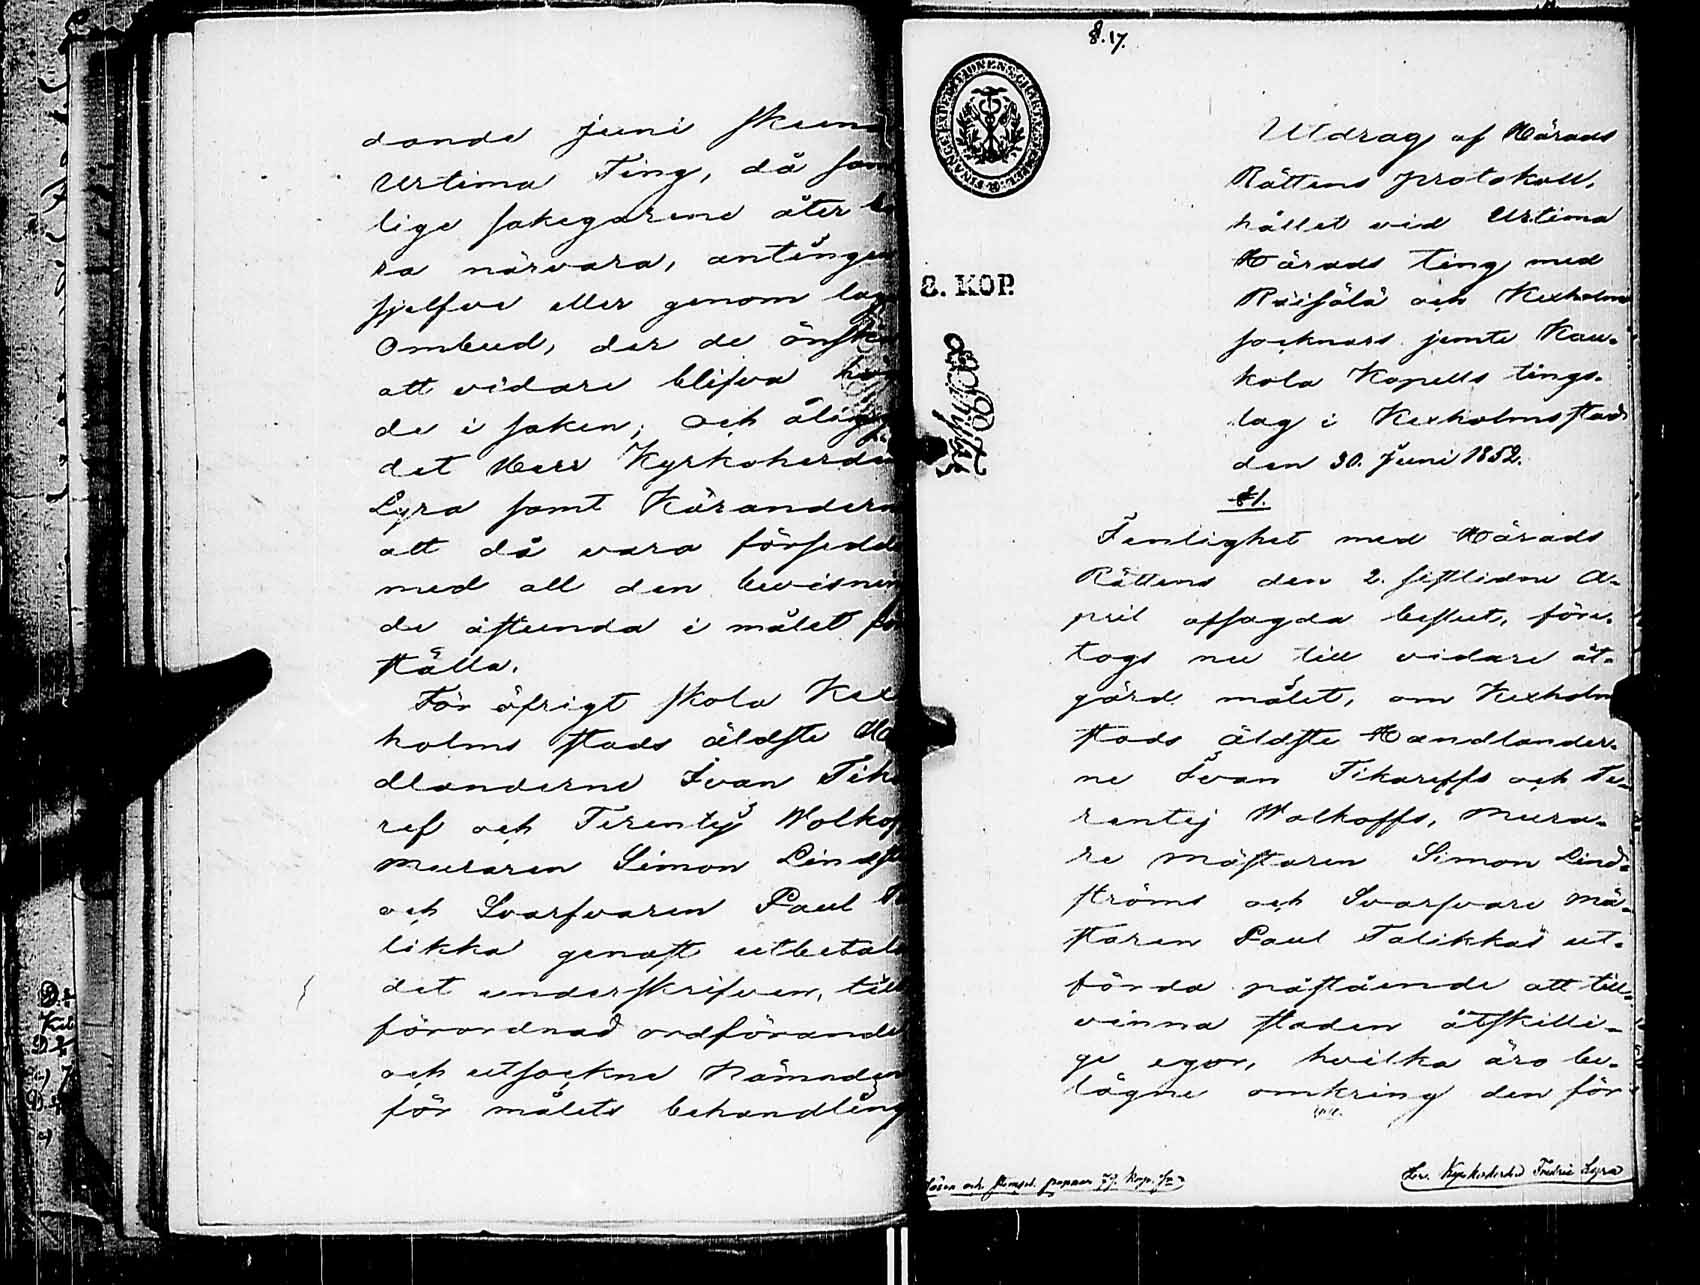 dande Juni
Urtima Ting, då
lige sakegarene åter
ra närvara, antingen
sjelfve eller genom
Ombud, der de
att vidare blifva
de i saken; och
det Herr Kyrkoherden
Lyra samt Käranderne
att då vara försedde
med all den bevisning
de åstunda i målet
ställa.
För öfrigt skola Kex
holms stads äldste
dlanderne Ivan
ref och Terentej Wolkof
muraren Simon
och Svarfvaren Paul
likka genast utbetala
det underskrifven, till
förordnad ordförande
och utsockne Nämnden
för målets behandling
8.17.
FINANCE EXPEDITIONENS
8. KOP.
Utdrag af Härads
Rättens protokoll,
hållet vid Urtima
Härads ting med
Räisälä och Kexholms
socknars jemte Kau-
kola Kapells tings-
lag i Kexholms stad
den 30. Juni 1852.
§1.
I enlighet med Härads
Rättens den 2. sistlidne A-
pril afsagda beslut, före-
togs nu till vidare åt-
gärd målet, om Kexholms
stads äldste Handlander-
ne Ivan Tikareffs och Te-
rentej Wolkoffs, Mura-
re mästaren Simon Lind-
ströms och Svarfvare mä-
staren Paul Talikkas ut-
förda påstående att till-
vinna staden åtskilli-
ge egor, hvilka äro be-
lägne omkring den för
Lösen och stämpel. papper 77. Kop. S:r
Herr Kyrkoherden Fredric Lyra